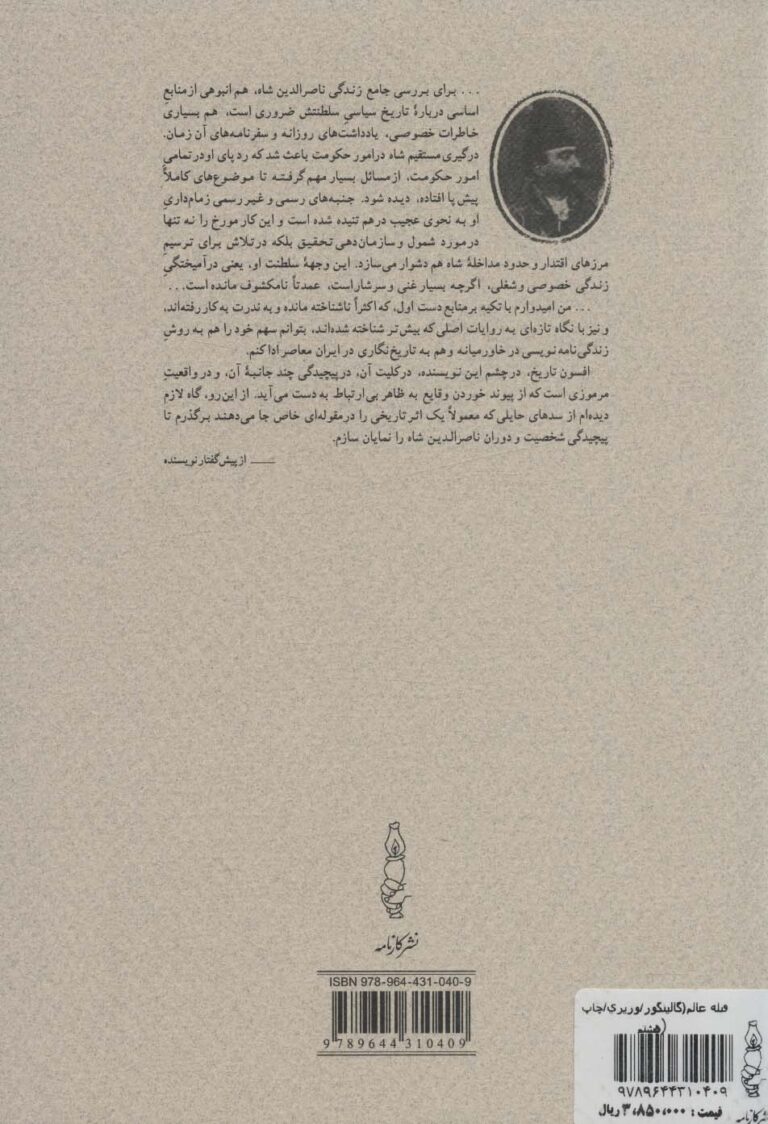 ... برای بررسی جامع زندگی ناصرالدین شاه، هم انبوهی از منابعِ
اساسی دربارهٔ تاریخ سیاسیِ سلطنتش ضروری است، هم بسیاری
خاطرات خصوصی، یادداشت‌های روزانه و سفرنامه‌های آن زمان.
درگیری مستقیم شاه در امور حکومت باعث شد که رد پای او در تمامی
امور حکومت، از مسائل بسیار مهم گرفته تا موضوع‌های کاملاً
پیش پا افتاده، دیده شود. جنبه‌های رسمی و غیر رسمی زمام‌داریِ
او به نحوی عجیب در هم تنیده شده است و این کار مورخ را نه تنها
در مورد شمول و سازمان‌دهی تحقیق بلکه در تلاش برای ترسیمِ
مرزهای اقتدار و حدود مداخلهٔ شاه هم دشوار می‌سازد. این وجههٔ سلطنت او، یعنی درآمیختگیِ
زندگی خصوصی و شغلی، اگرچه بسیار غنی و سرشار است، عمدتاً نامکشوف مانده است...
... من امیدوارم با تکیه بر منابع دست اول، که اکثراً ناشناخته مانده و به ندرت به کار رفته‌اند،
و نیز با نگاه تازه‌ای به روایات اصلی که بیش‌تر شناخته شده‌اند، بتوانم سهم خود را هم به روشِ
زندگی‌نامه نویسی در خاورمیانه و هم به تاریخ‌نگاری در ایران معاصر ادا کنم.
افسون تاریخ، در چشم این نویسنده، در کلیت آن، در پیچیدگی چند جانبهٔ آن، و در واقعیتِ
مرموزی است که از پیوند خوردن وقایع به ظاهر بی‌ارتباط به دست می‌آید. از این‌رو، گاه لازم
دیده‌ام از سدهای حایلی که معمولاً یک اثر تاریخی را در مقوله‌ای خاص جا می‌دهند برگذرم تا
پیچیدگی شخصیت و دوران ناصرالدین شاه را نمایان سازم.
از پیش‌گفتار نویسنده
نشر کارنامه
ISBN 978-964-431-040-9
9 789644 310409
قبله عالم(گالینگور/وزیری/چاپ
هشتم)
۹۷۸۹۶۴۴۳۱۰۴۰۹
قیمت : ۳،۸۵۰،۰۰۰ ریال
نشر کارنامه